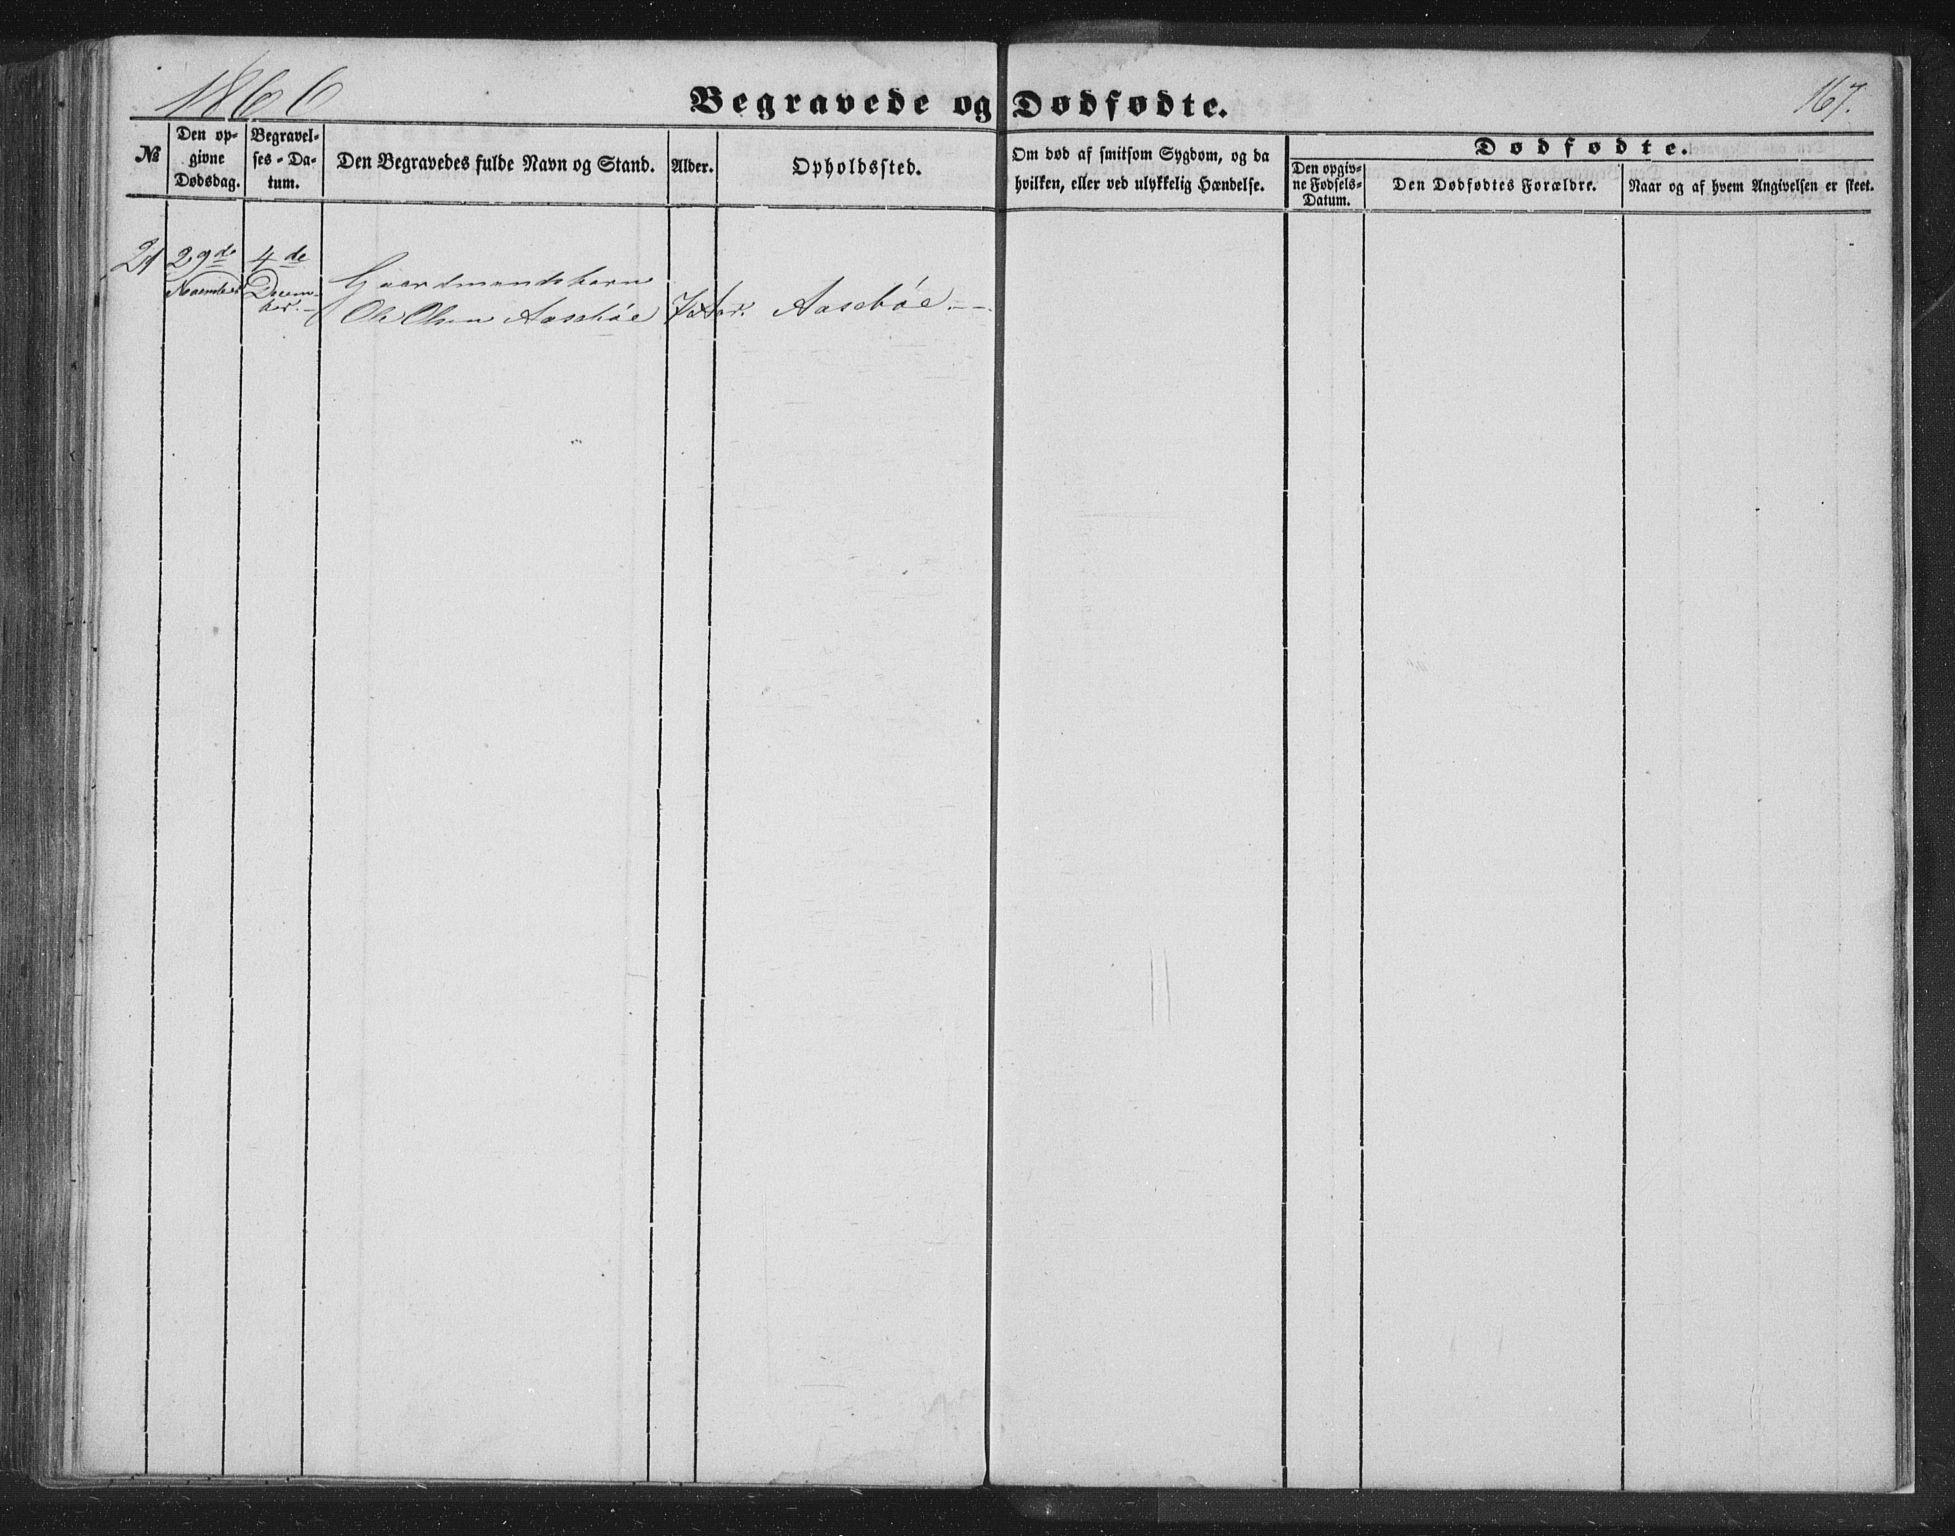 1866
Begravede og Dødfødte.
167.
№
Den op-
givne
Dødsdag.
Begravel-
ses-Da-
tum.
Den Begravedes fulde Navn og Stand.
Alder.
Opholdssted.
Om død af smitsom Sygdom, og da
hvilken, eller ved ulykkelig Hændelse.
Dødfødte.
Den opgiv-
ne Fødsels-
Datum.
Den Dødfødtes Forældre.
Naar og af hvem Angivelsen er skeet.
21
29de
November
4de
Decem-
ber.
Gaardmandsbarn
Ole Olsen Aasebøe
7 Aar.
Aasebøe